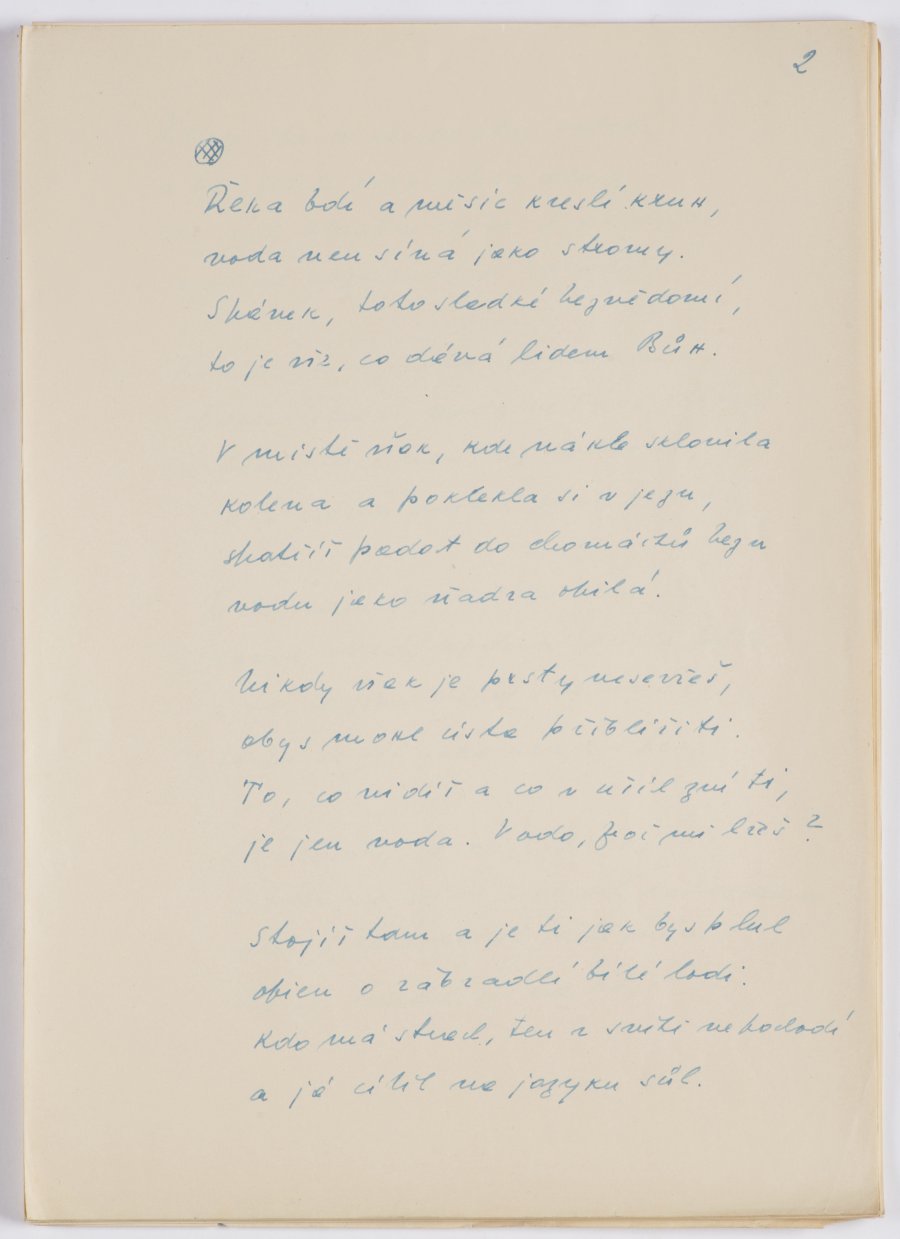 2
Řeka bdí a měsíc kreslí kruh,
voda neusíná jako stromy.
Spánek, toto sladké bezvědomí,
to je vše, co dává lidem Bůh.
V místě však, kde náhle sklonila
kolena a poklekla si v jezu,
spatříš padat do chomáčů bezu
vodu jako ňadra opilá.
Nikdy však je prsty nesevřeš,
abys mohl ústa přiblížiti.
To, co vidíš a co v uších zní ti,
je jen voda. Vodo, proč mi lžeš?
Stojíš tam a je ti jak bys plul
opřen o zábradlí bílé lodi.
Kdo má strach, ten v světě nepochodí
a já cítil na jazyku sůl.